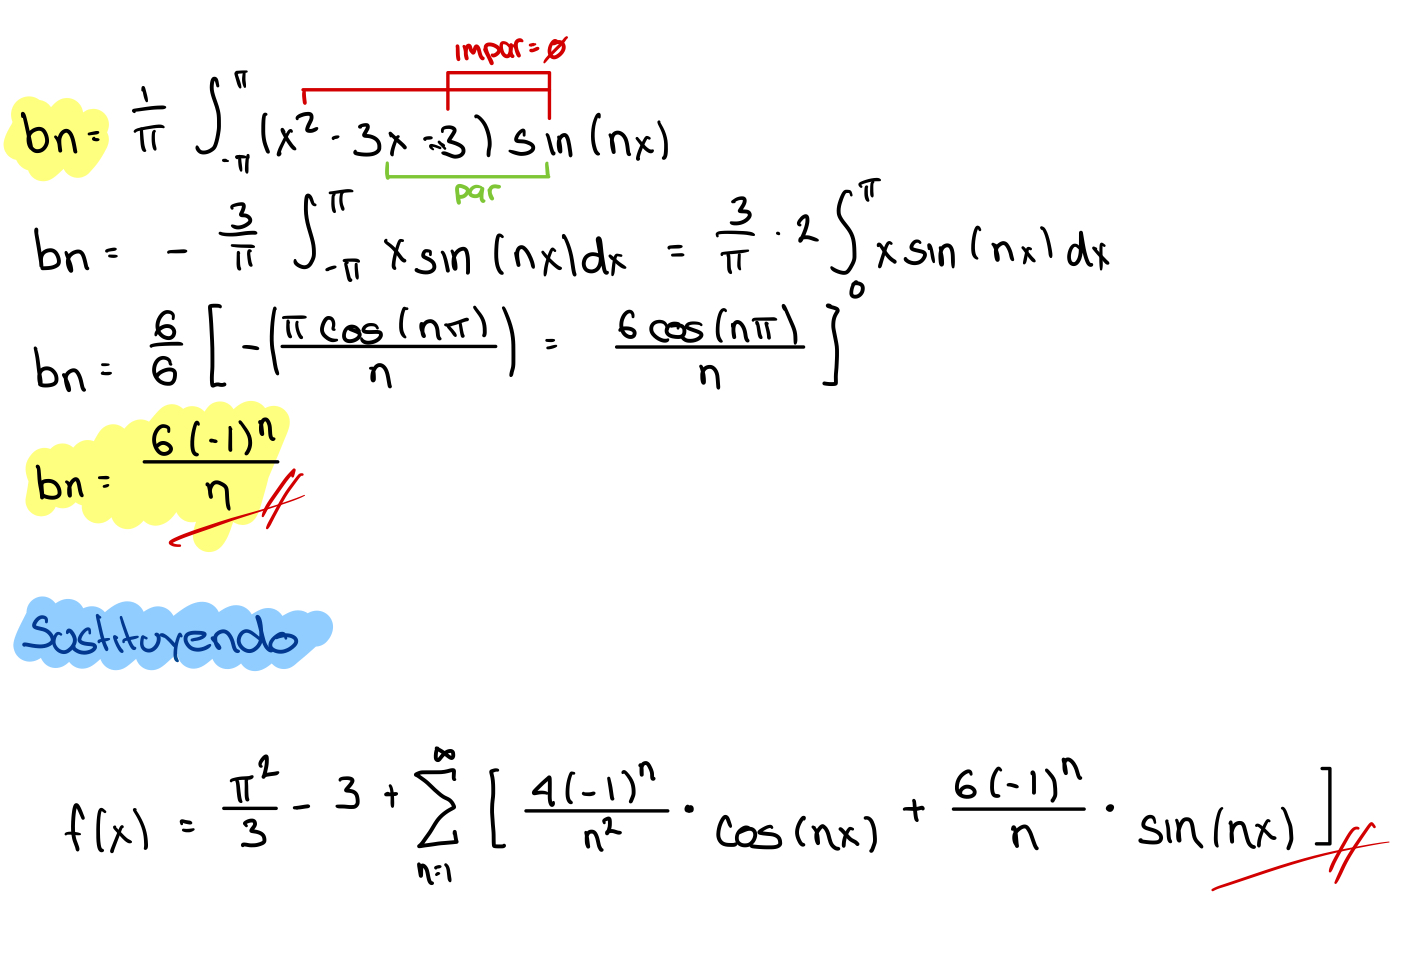 impar = ∅
bn = 1/π ∫_{-π}^{π} (x² - 3x - 3) sin (nx)
par
bn = - 3/π ∫_{-π}^{π} x sin (nx) dx = 3/π · 2 ∫_0^π x sin (nx) dx
bn = 6/6 [ -( π cos (nπ) / n ) = 6 cos (nπ) / n ]
bn = 6 (-1)ⁿ / n
Sustituyendo
f(x) = π²/3 - 3 + ∑_{n=1}^{∞} [ 4(-1)ⁿ / n² · cos (nx) + 6(-1)ⁿ / n · sin (nx) ]